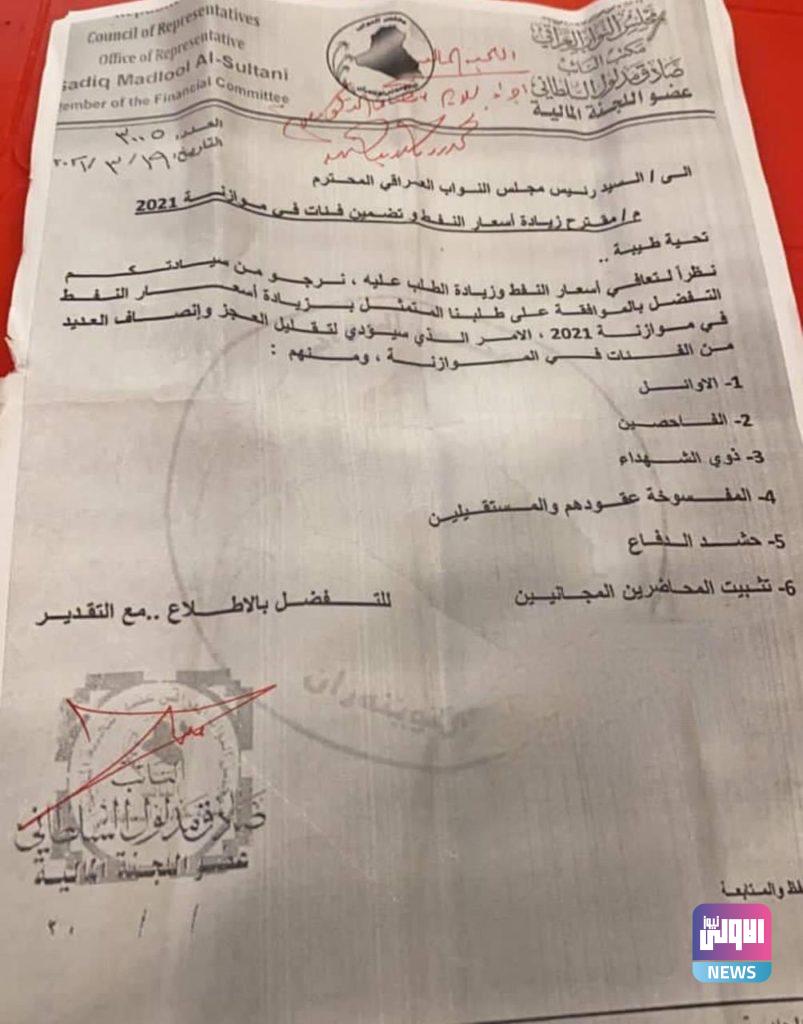 Council of Representatives
Office of Representative
Sadiq Madlool Al-Sultani
Member of the Financial Committee
مجلس النواب العراقي
مكتب النائب
صادق مدلول السلطاني
عضو اللجنة المالية
اللجنة المالية
العدد: ٣٠٠٥
التاريخ: ٢٠٢١/٣/١٩
الى / السيد رئيس مجلس النواب العراقي المحترم
م / مقترح زيادة أسعار النفط و تضمين فئات في موازنة 2021
تحية طيبة ..
نظراً لتعافي أسعار النفط وزيادة الطلب عليه ، نرجو من سيادتكم
التفضل بالموافقة على طلبنا المتمثل بزيادة أسعار النفط
في موازنة 2021 ، الامر الذي سيؤدي لتقليل العجز وإنصاف العديد
من الفئات في الموازنة ، ومنهم :
1- الاوائل
2- الفاحصين
3- ذوي الشهداء
4- المفسوخة عقودهم والمستقيلين
5- حشد الدفاع
6- تثبيت المحاضرين المجانيين
للتفضل بالاطلاع ..مع التقدير
النائب
صادق مدلول السلطاني
عضو اللجنة المالية
/ / ٢٠
والمتابعة
الاولى نيوز
NEWS